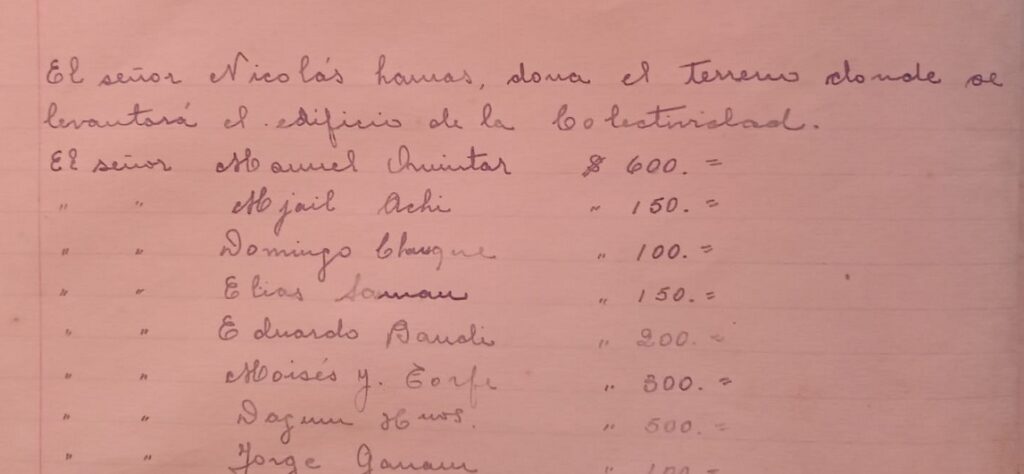 El señor Nicolás hamas, dona el terreno donde se
levantará el edificio de la Colectividad.
El señor Manuel Quintar $ 600.=
" " Mjail Achi " 150.=
" " Domingo Chauque " 100.=
" " Elias Saman " 150.=
" " Eduardo Baudi " 200.=
" " Moisés y. " 300.=
" " Dagum Hnos. " 500.=
" " Jorge Ganam " 100.=